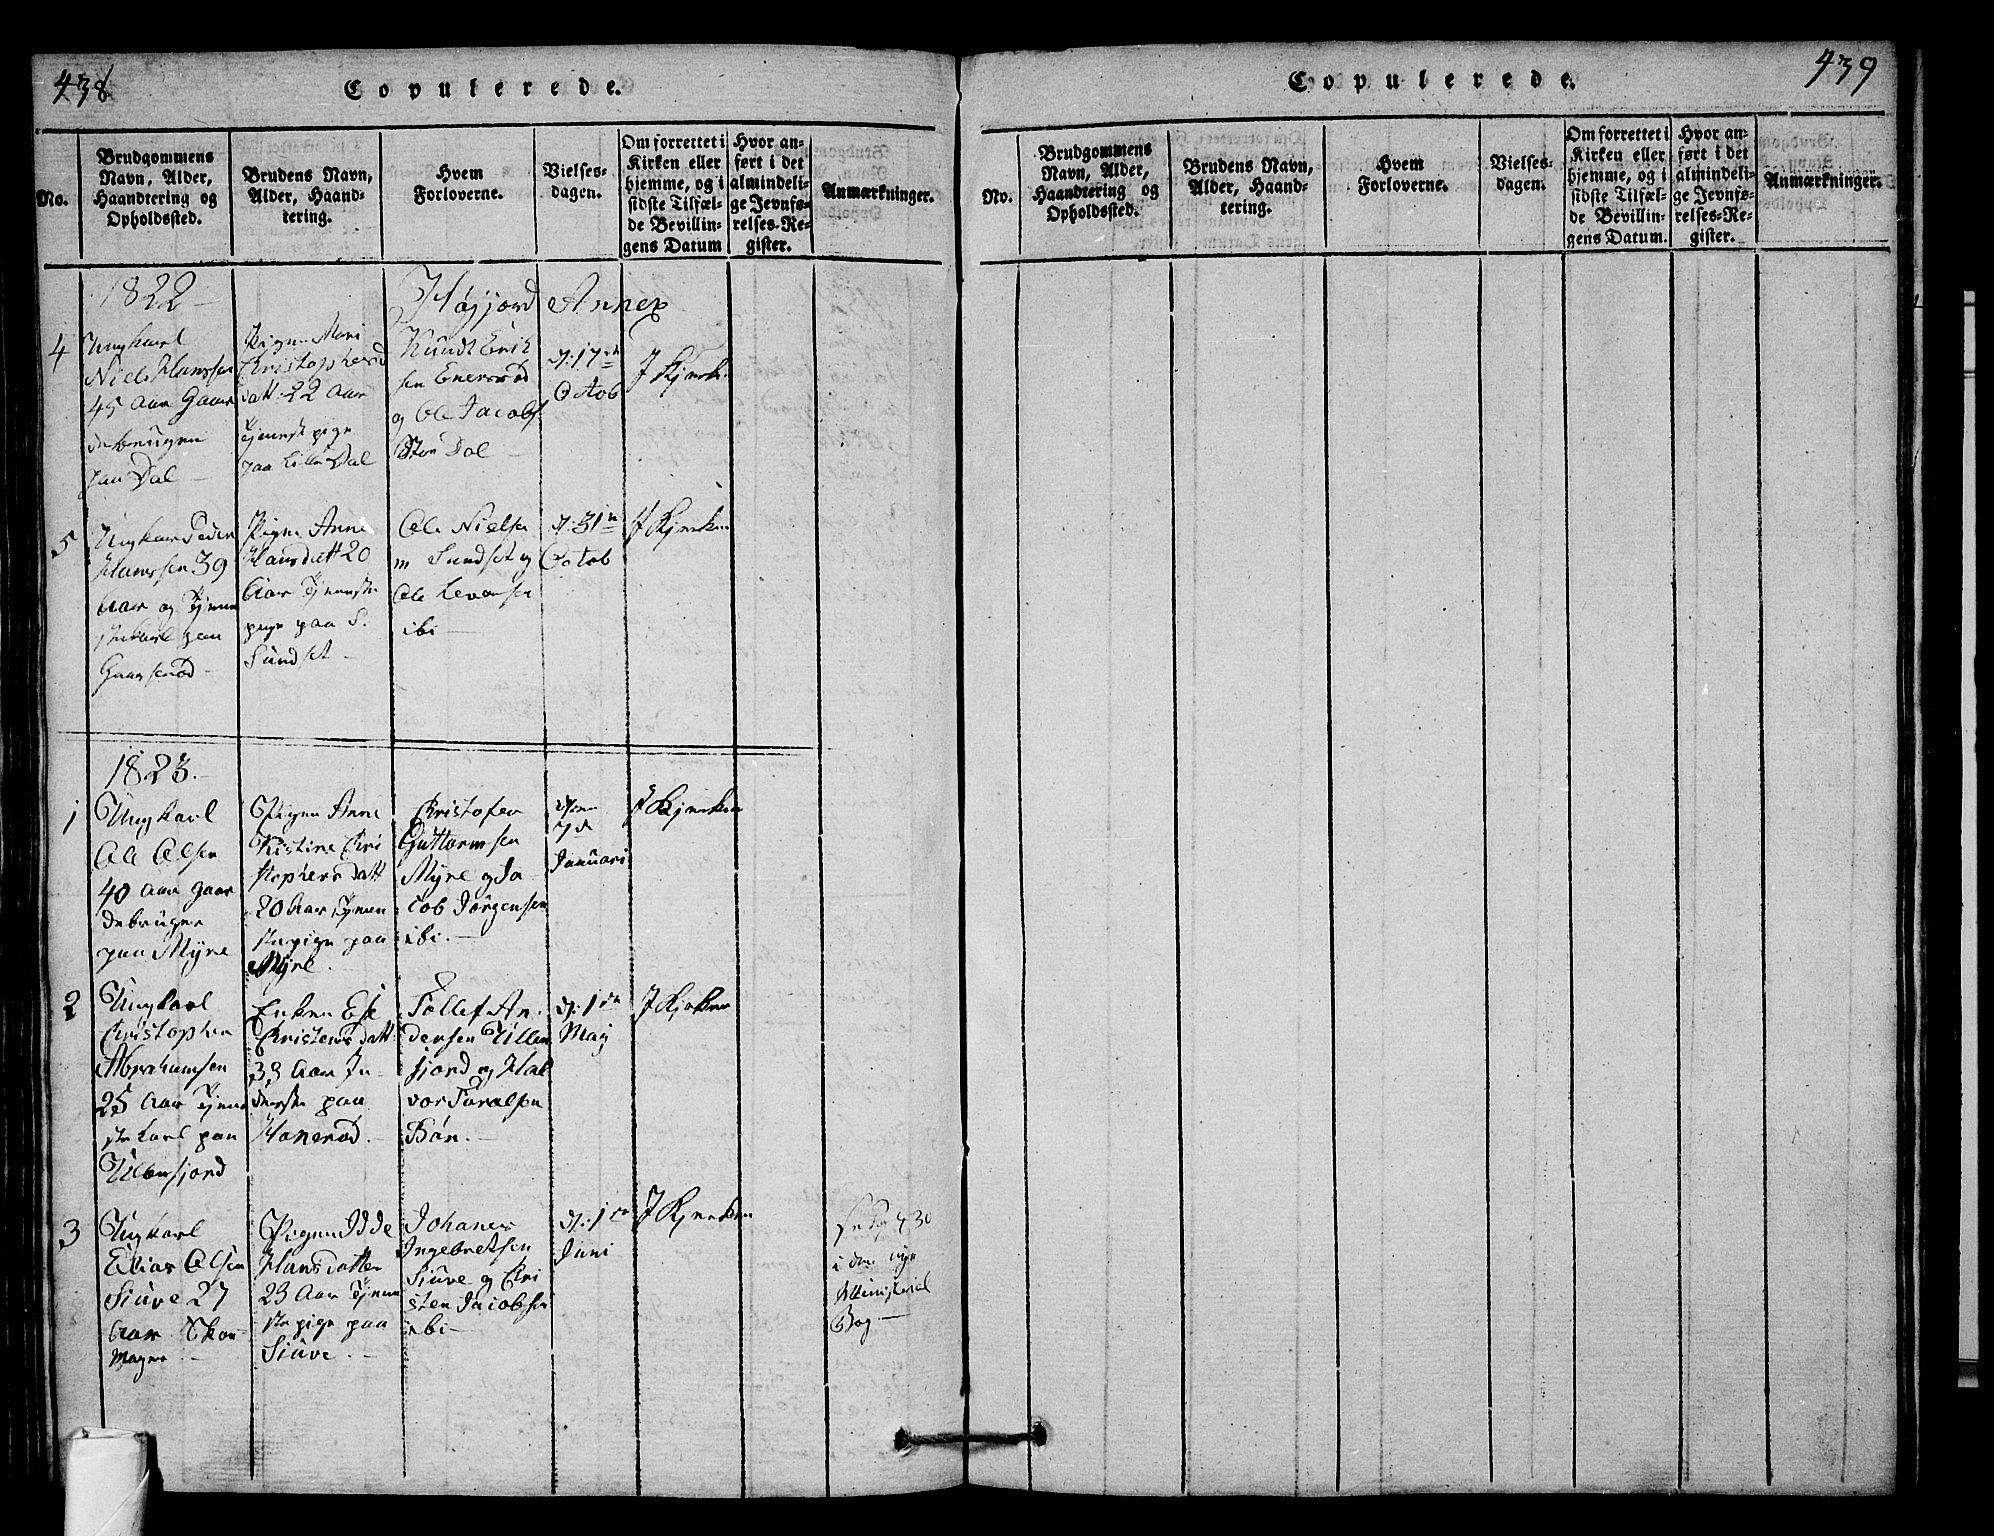 438
Copulerede.
No.
Brudgommens
Navn, Alder,
Haandtering og
Opholdssted.
Brudens Navn,
Alder, Haand-
tering.
Hvem
Forloverne.
Vielses-
dagen.
Om forrettet i
Kirken eller
hjemme, og i
sidste Tilfæl-
de Bevillin-
gens Datum
Hvor an-
ført i det
almindeli-
ge Jevnfø-
relses-Re-
gister.
Anmærkninger.
1822
Høyjord Annex
4
Ungkarl
Niels Hanssen
45 Aar Gaar
debruger
paa Dal
Pigen Mari
Christophersd
datt: 22 Aar
Tjeneste pige
paa Lille Dal
Knudt Erik
sen Enersrød
og Ole Jacobs.
Stor Dal
d: 17de
Octob
I Kjerk.
5
Ungkarl Peder
Hanssen 39
Aar og Tjene
stekarl paa
Gaasserød
Pigen Anne
Hansdatt 20
Aar Tjeneste
pige paa S.
Sundset
Ole Nielsen
Sundset og
Ole Levorsen
ibi
d: 31te
Octob
I Kjerken
1823.
1
Ungkarl
Ole Olsen
40 Aar Gaar
debruger
paa Myre
Pigen Anne
Kistine Chri
stophersdatt
20 Aar Tjene
stepige paa
Myre
Christofer
Guttormsen
Myre og Ja
cob Jørgensen
ibi.
den
7de
Januari
I Kjerken
2
Ungkarl
Christopher
Abrahamsen
25 Aar Tjene
stekarl paa
Ulensjord
Enken Else
Christensdatt
33 Aar In
derste paa
Hanerød.
Tollef An
dersen Ullen
sjord og Hal
vor Taralsen
Bøn.
d: 1de
May
I Kjerken
3
Ungkarl
Elias Olsen
Siuve 27
Aar Skoe
mager.
Pigen Idde
Hansdatter
23 Aar Tjene
stepige paa
Siuve.
Johanes
Ingebretsen
Siuve og Chri
sten Jacobsen
ibi
d: 1de
Juni
I Kjerken
se pag 430
i den nye
Ministerial
Bog.
439
Copulerede.
No.
Brudgommens
Navn, Alder,
Haandtering og
Opholdssted.
Brudens Navn,
Alder, Haand-
tering.
Hvem
Forloverne.
Vielses-
dagen.
Om forrettet i
Kirken eller
hjemme, og i
sidste Tilfæl-
de Bevillin-
gens Datum.
Hvor an-
ført i det
almindeli-
ge Jevnfø-
relses-Re-
gister.
Anmærkninger.